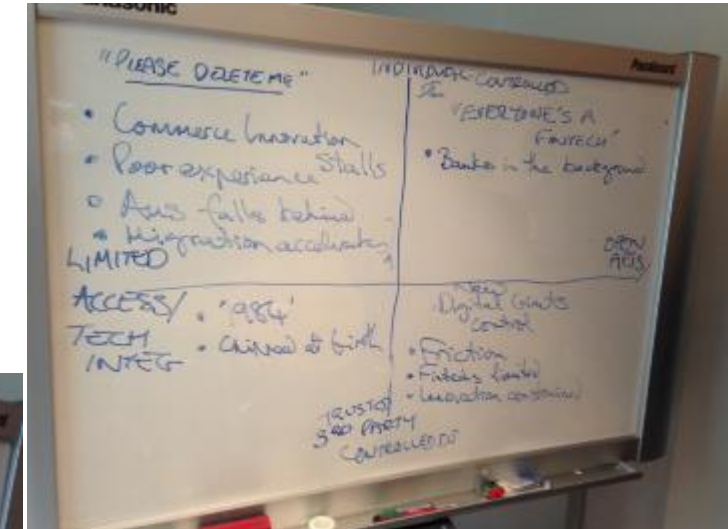 Panasonic
"PLEASE DELETE ME"
• Commerce Innovation
Stalls
• Poor experience
• Aus falls behind
• Migration accelerates
LIMITED
ACCESS/
TECH
INTEG
INDIVIDUAL CONTROLLED
"EVERYONE'S A
FINTECH"
• Banks in the background
OPEN
• '1984'
• Chipped at birth
New
Digital Giants
control
• Friction
• Fintechs limited
• Innovation constrained
TRUSTED
3RD PARTY
CONTROLLED